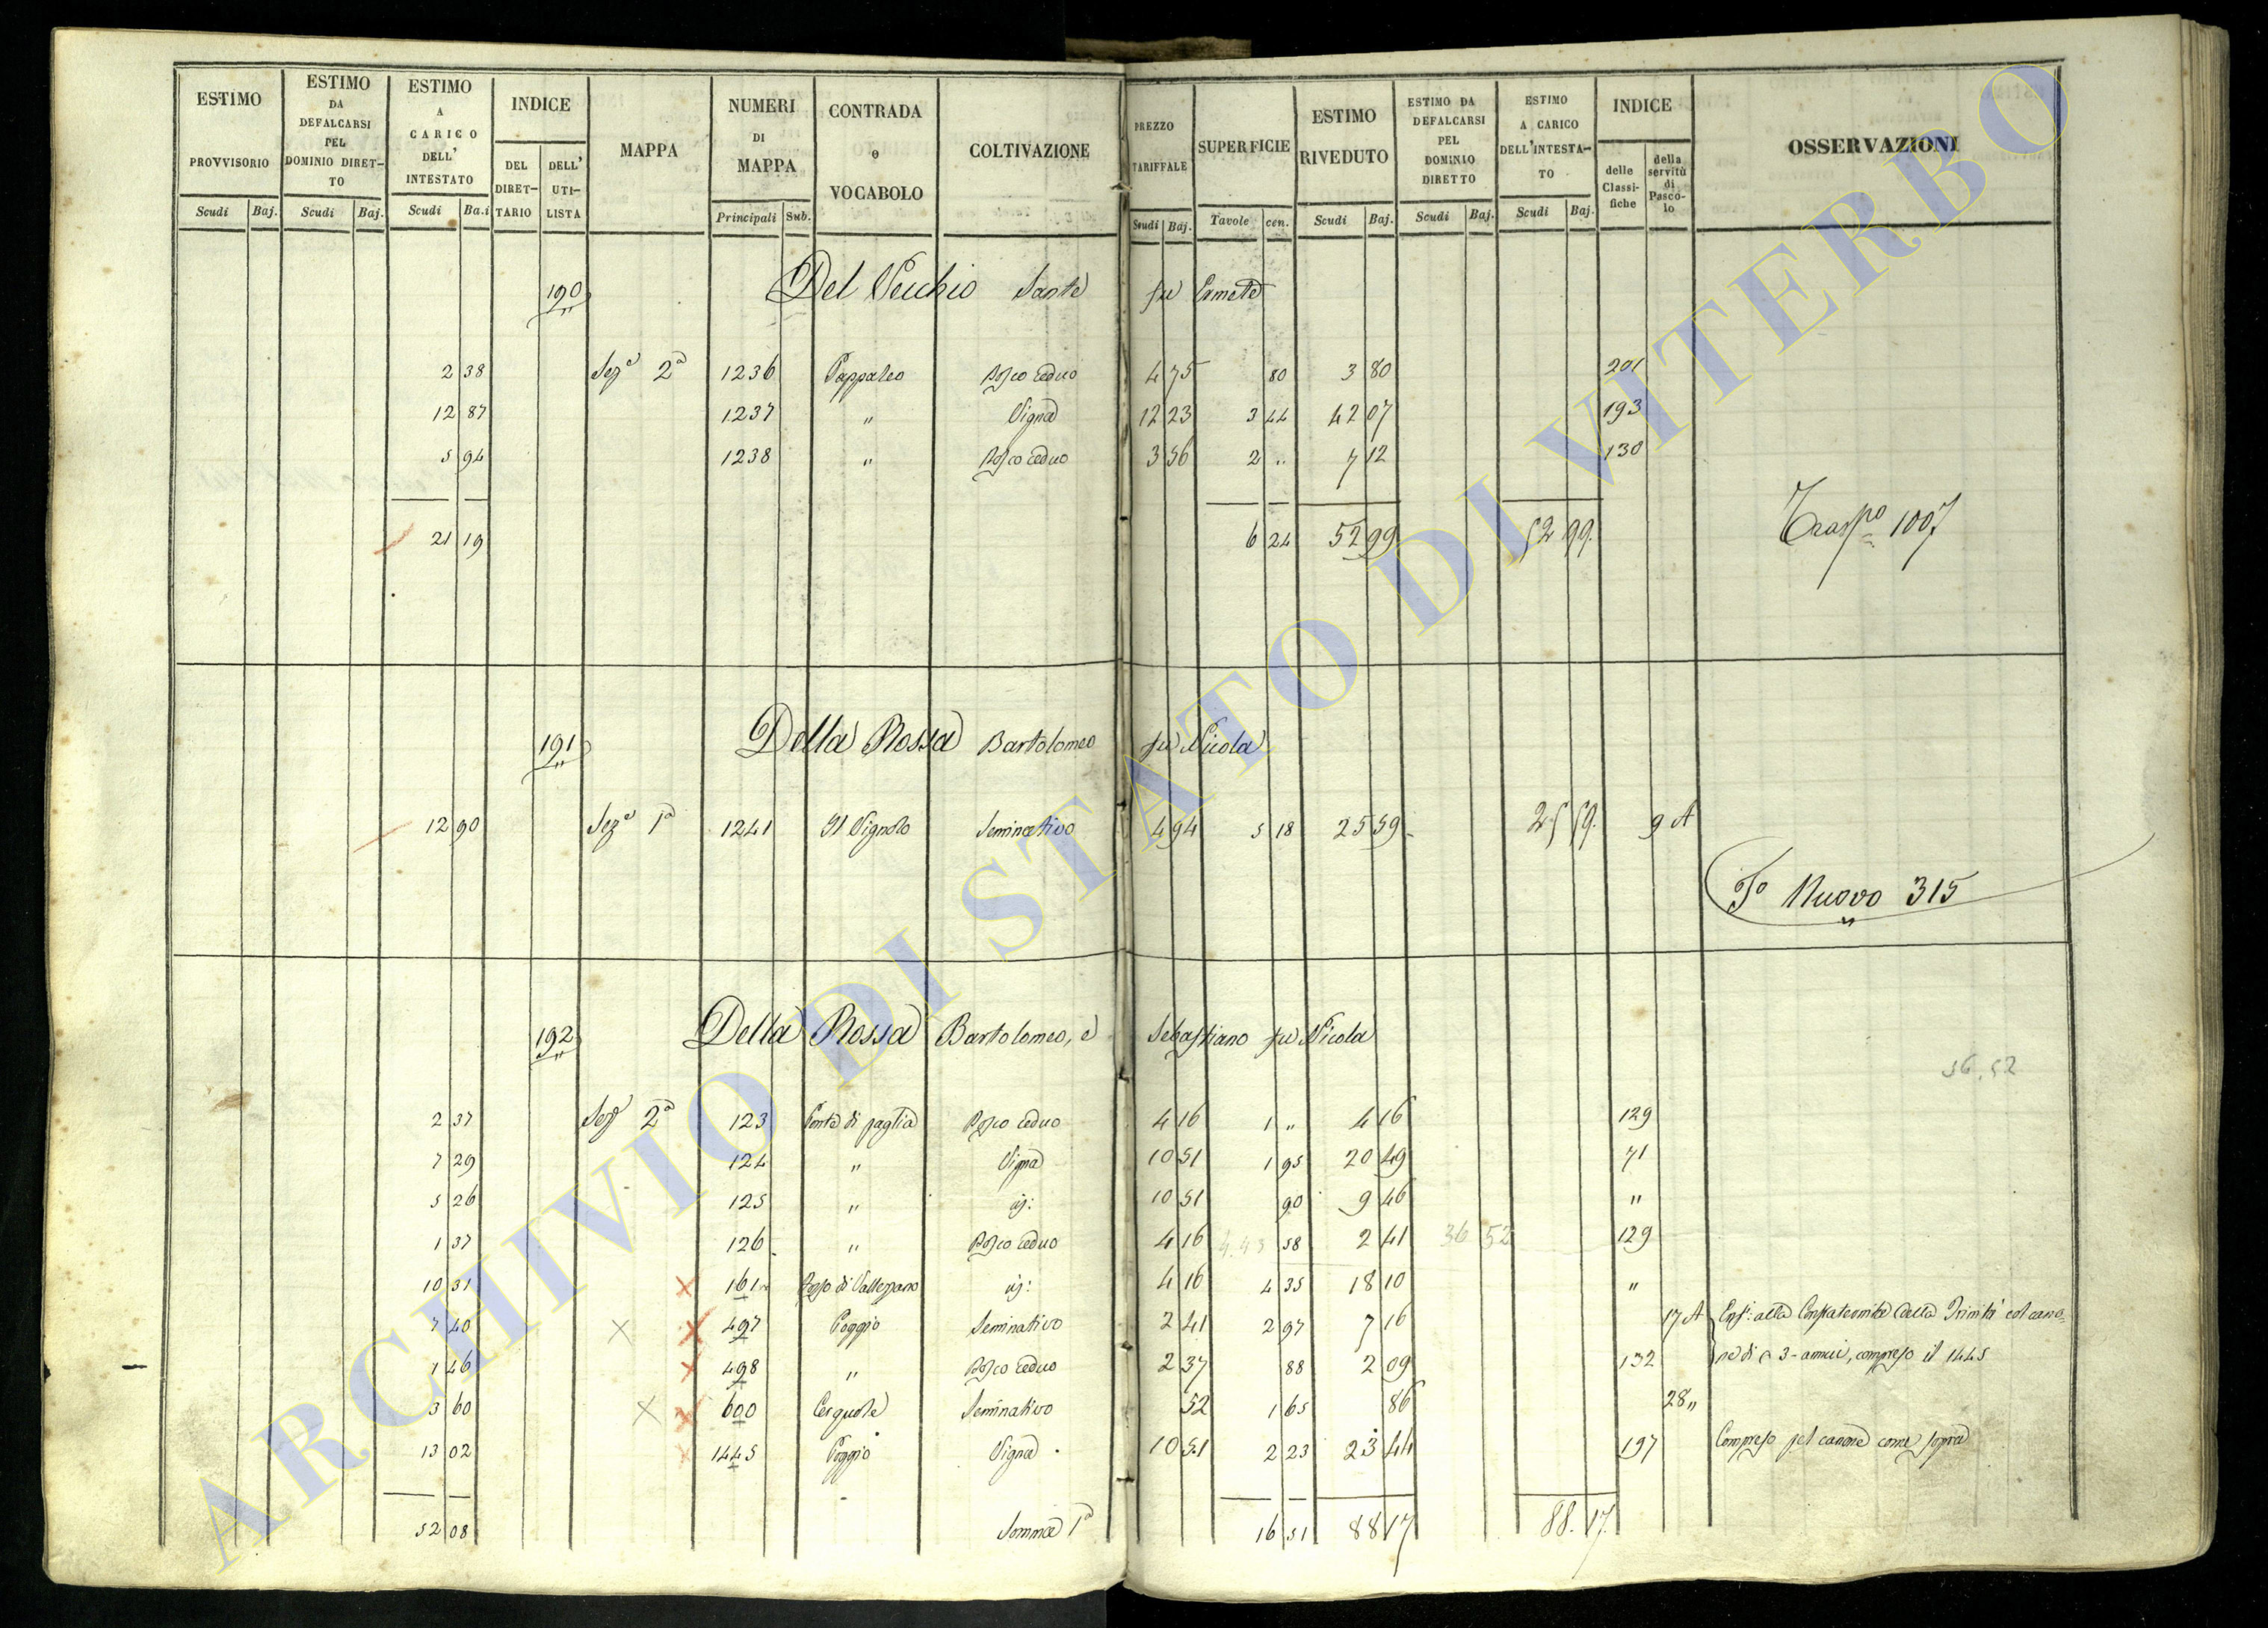 ESTIMO PROVVISORIO Scudi Baj.
ESTIMO DA DEFALCARSI PEL DOMINIO DIRET-TO Scudi Baj.
ESTIMO A CARICO DELL' INTESTATO Scudi Ba.i
INDICE DEL DIRET-TARIO DELL' UTI-LISTA
MAPPA
NUMERI DI MAPPA Principali Sub.
CONTRADA o VOCABOLO
COLTIVAZIONE
PREZZO TARIFFALE Scudi Baj.
SUPERFICIE Tavole cen.
ESTIMO RIVEDUTO Scudi Baj.
ESTIMO DA DEFALCARSI PEL DOMINIO DIRETTO Scudi Baj.
ESTIMO A CARICO DELL'INTESTA-TO Scudi Baj.
INDICE delle Classi-fiche della servitù di Pasco-lo
OSSERVAZIONI
190 Del Vecchio Sante fu Ermete
2 38 Sez.e 2a 1236 Pappaleo Bosco ceduo 4 75 80 3 80 201
12 87 1237 " Vigna 12 23 3 44 42 07 193
5 94 1238 " Bosco ceduo 3 56 2 " 7 12 130
21 19 6 24 52 99 52 99. Trasp.o 1007
191 Della Rossa Bartolomeo fu Nicola
12 90 Sez.e 1a 1241 Il Vignolo Seminativo 4 94 5 18 25 59 25 59. 9 A
Nuovo 315
192 Della Rossa Bartolomeo, e Sebastiano fu Nicola
36.52
2 37 Sez.e 2a 123 Ponte di paglia Bosco ceduo 4 16 1 " 4 16 129
7 29 124 " Vigna 10 51 1 95 20 49 71
5 26 125 " id: 10 51 90 9 46 "
1 37 126 " Bosco ceduo 4 16 4.43 58 2 41 36 52 129
10 31 161 Fosso di id: 4 16 4 35 18 10 "
7 40 497 Poggio Seminativo 2 41 2 97 7 16 17 A Enf: alla Confraternita della Trinità col cano-
1 46 498 " Bosco ceduo 2 37 88 2 09 132 ne di 3 annui, compreso il 1445
3 60 600 Cerquole Seminativo 52 1 65 86 28 "
13 02 1445 Poggio Vigna 10 51 2 23 23 44 197 Compreso pel canone come sopra
52 08 Somma 1a 16 51 88 17 88.17
ARCHIVIO DI STATO DI VITERBO